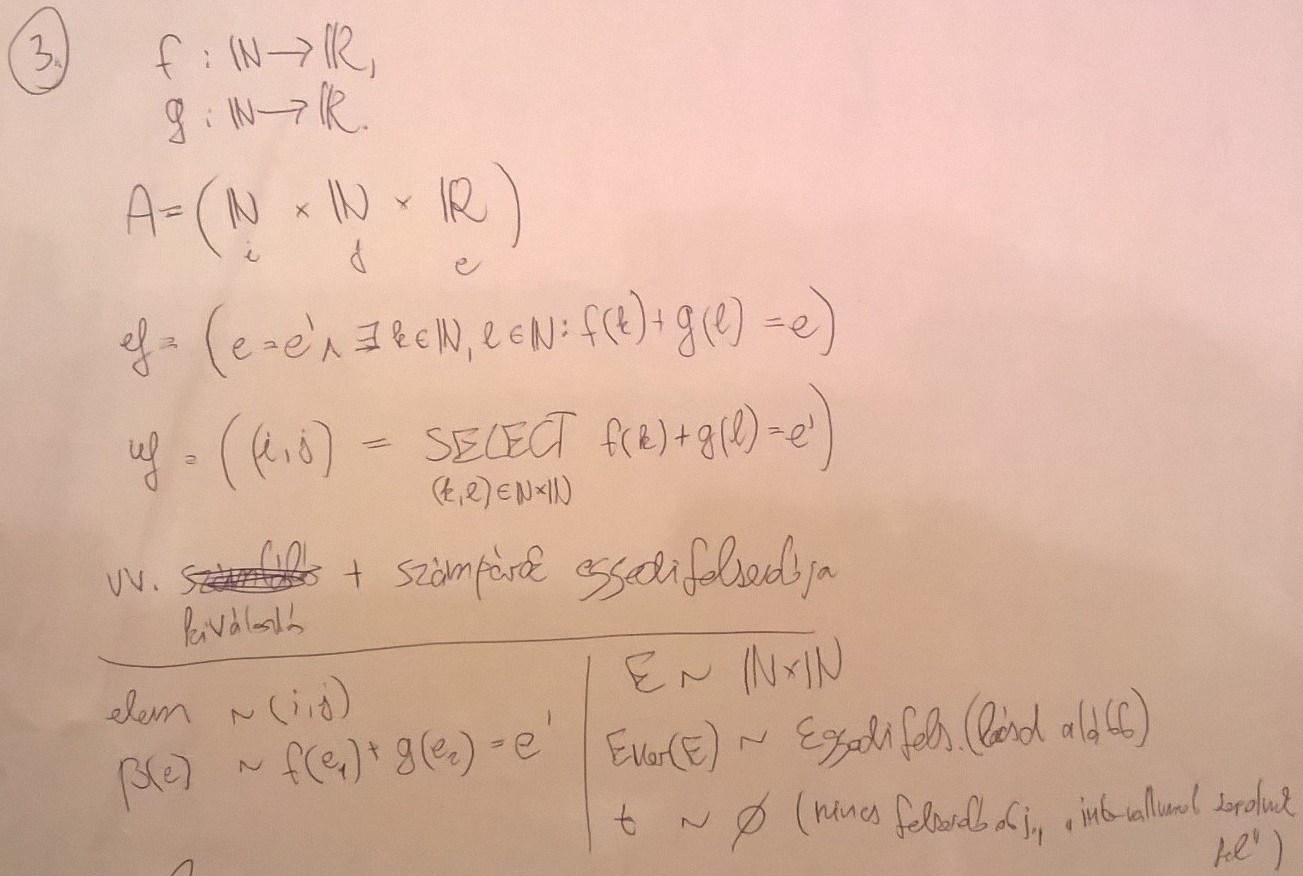 3.
f : ℕ → ℝ,
g : ℕ → ℝ.
A = ( ℕ × ℕ × ℝ )
i j e
ef = ( e = e' ∧ ∃ k ∈ ℕ, l ∈ ℕ : f(k) + g(l) = e )
uf = ( (i,j) = SELECT f(k) + g(l) = e' )
(k,l) ∈ ℕ×ℕ
VV. + számpárok egyedi felsorolója
kiválasztás
elem ~ (i,j)
β(e) ~ f(e₁) + g(e₂) = e'
E ~ ℕ×ℕ
Enor(E) ~ Egyedi fels. (lásd alább)
t ~ ∅ (nincs felsoroló obj., „intervallumot sorolunk
fel")